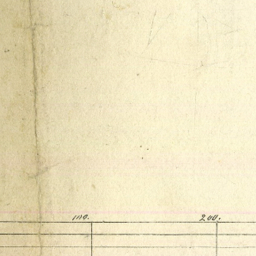 100. 200.